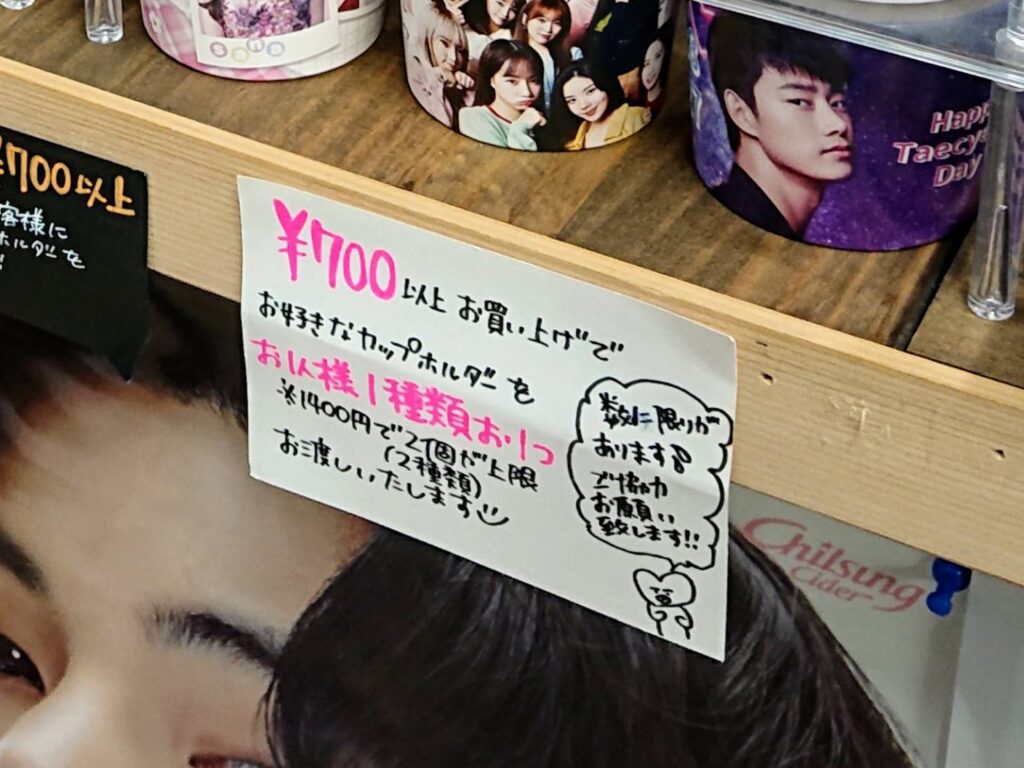 Happy
Taecye
Day
¥700以上
客様に
ホルダーを
¥700以上 お買い上げで
お好きなカップホルダーを
お1人様1種類お1つ
※1400円で2個が上限
(2種類)
お渡しいたします
数に限りが
あります
ご協力
お願い
致します!!
Chilsung
Cider